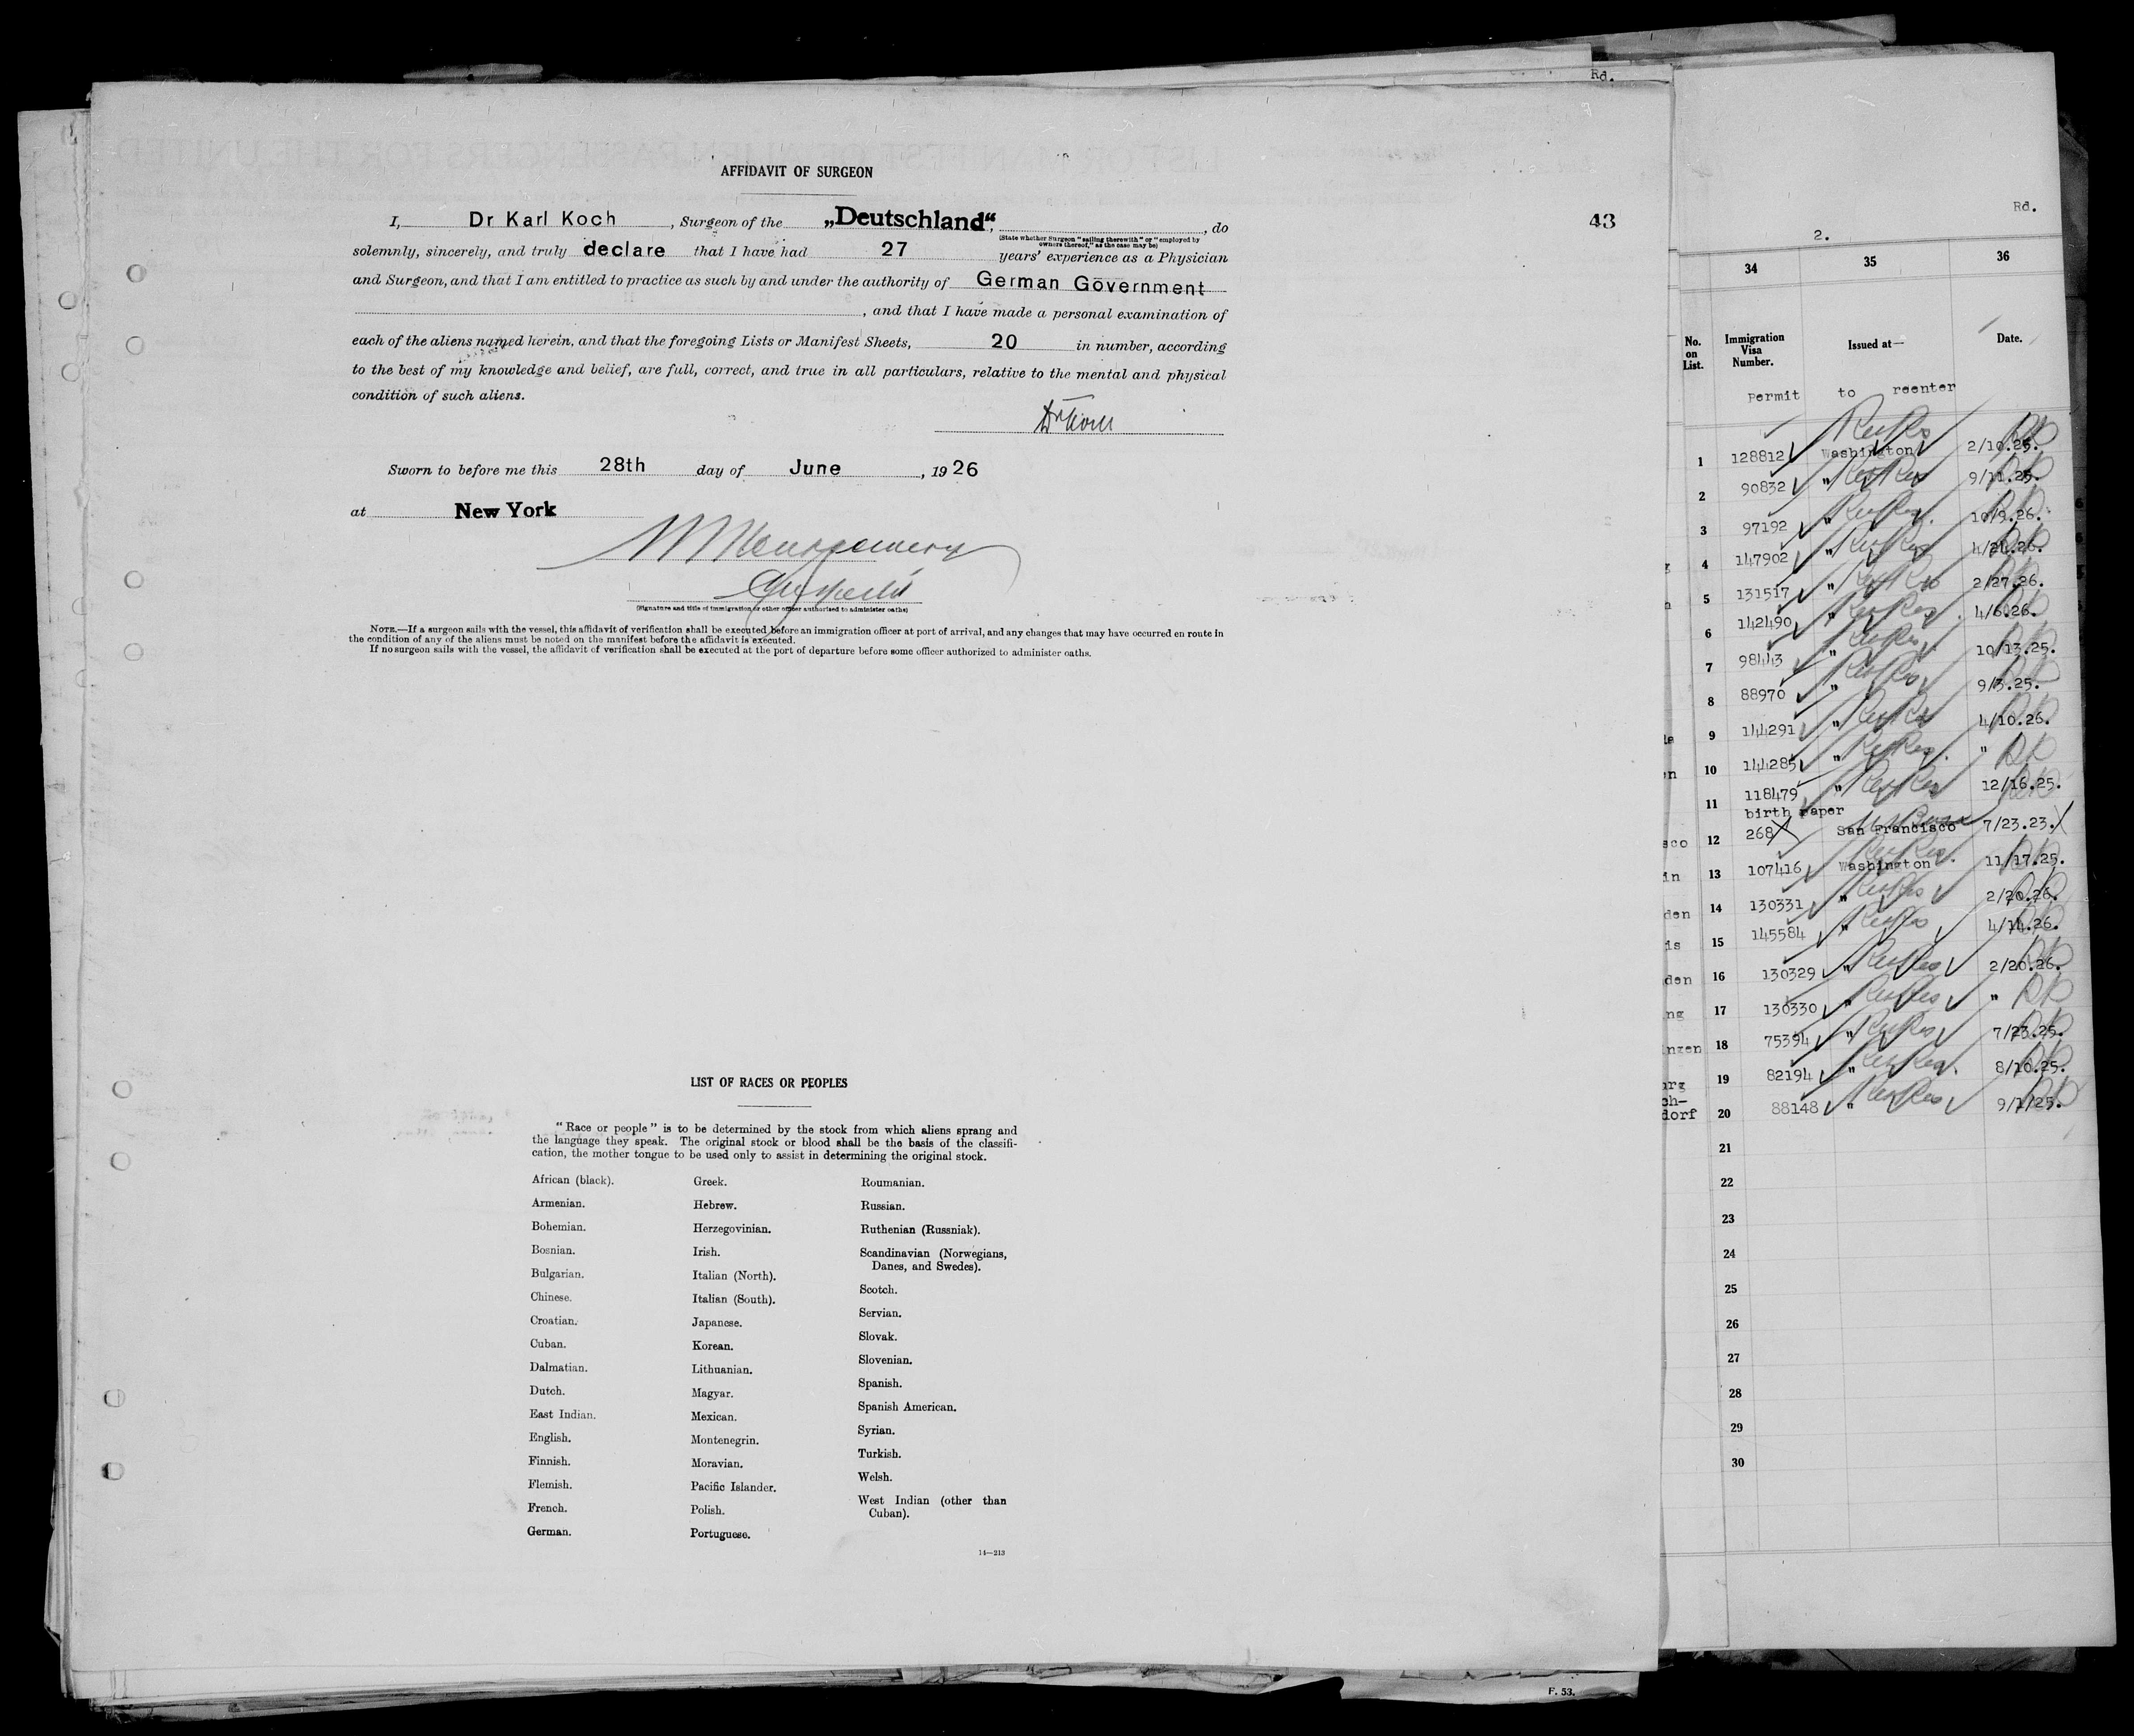 Rd.
AFFIDAVIT OF SURGEON
43
I, Dr Karl Koch, Surgeon of the „Deutschland“, do
(State whether Surgeon "sailing therewith" or "employed by
owners thereof," as the case may be)
solemnly, sincerely, and truly declare that I have had 27 years' experience as a Physician
and Surgeon, and that I am entitled to practice as such by and under the authority of German Government
, and that I have made a personal examination of
each of the aliens named herein, and that the foregoing Lists or Manifest Sheets, 20 in number, according
to the best of my knowledge and belief, are full, correct, and true in all particulars, relative to the mental and physical
condition of such aliens.
Sworn to before me this 28th day of June, 1926
at New York
(Signature and title of immigration or other officer authorized to administer oaths)
NOTE.—If a surgeon sails with the vessel, this affidavit of verification shall be executed before an immigration officer at port of arrival, and any changes that may have occurred en route in
the condition of any of the aliens must be noted on the manifest before the affidavit is executed.
If no surgeon sails with the vessel, the affidavit of verification shall be executed at the port of departure before some officer authorized to administer oaths.
LIST OF RACES OR PEOPLES
"Race or people" is to be determined by the stock from which aliens sprang and
the language they speak. The original stock or blood shall be the basis of the classifi-
cation, the mother tongue to be used only to assist in determining the original stock.
African (black).
Armenian.
Bohemian.
Bosnian.
Bulgarian.
Chinese.
Croatian.
Cuban.
Dalmatian.
Dutch.
East Indian.
English.
Finnish.
Flemish.
French.
German.
Greek.
Hebrew.
Herzegovinian.
Irish.
Italian (North).
Italian (South).
Japanese.
Korean.
Lithuanian.
Magyar.
Mexican.
Montenegrin.
Moravian.
Pacific Islander.
Polish.
Portuguese.
Roumanian.
Russian.
Ruthenian (Russniak).
Scandinavian (Norwegians,
Danes, and Swedes).
Scotch.
Servian.
Slovak.
Slovenian.
Spanish.
Spanish American.
Syrian.
Turkish.
Welsh.
West Indian (other than
Cuban).
14—213
F. 53.
Rd.
2.
34 35 36
No.
on
List.
Immigration
Visa
Number.
Issued at—
Date.
Permit to reenter
1 128812 Washington 2/10.25.
2 90832 " 9/11.25.
3 97192 " 10/9.26.
4 147902 " 4/24.26.
5 131517 " 2/27.26.
6 142490 " 4/6.26.
7 98443 " 10/13.25.
8 88970 " 9/3.25.
9 144291 " 4/10.26.
10 144285 " "
11 118479 " 12/16.25.
birth paper
12 268 San Francisco 7/23.23.
13 107416 Washington 11/17.25.
14 130331 " 2/20.26.
15 145584 " 4/14.26.
16 130329 " 2/20.26.
17 130330 " "
18 75394 " 7/23.25.
19 82194 " 8/10.25.
20 88148 " 9/1/25.
21
22
23
24
25
26
27
28
29
30